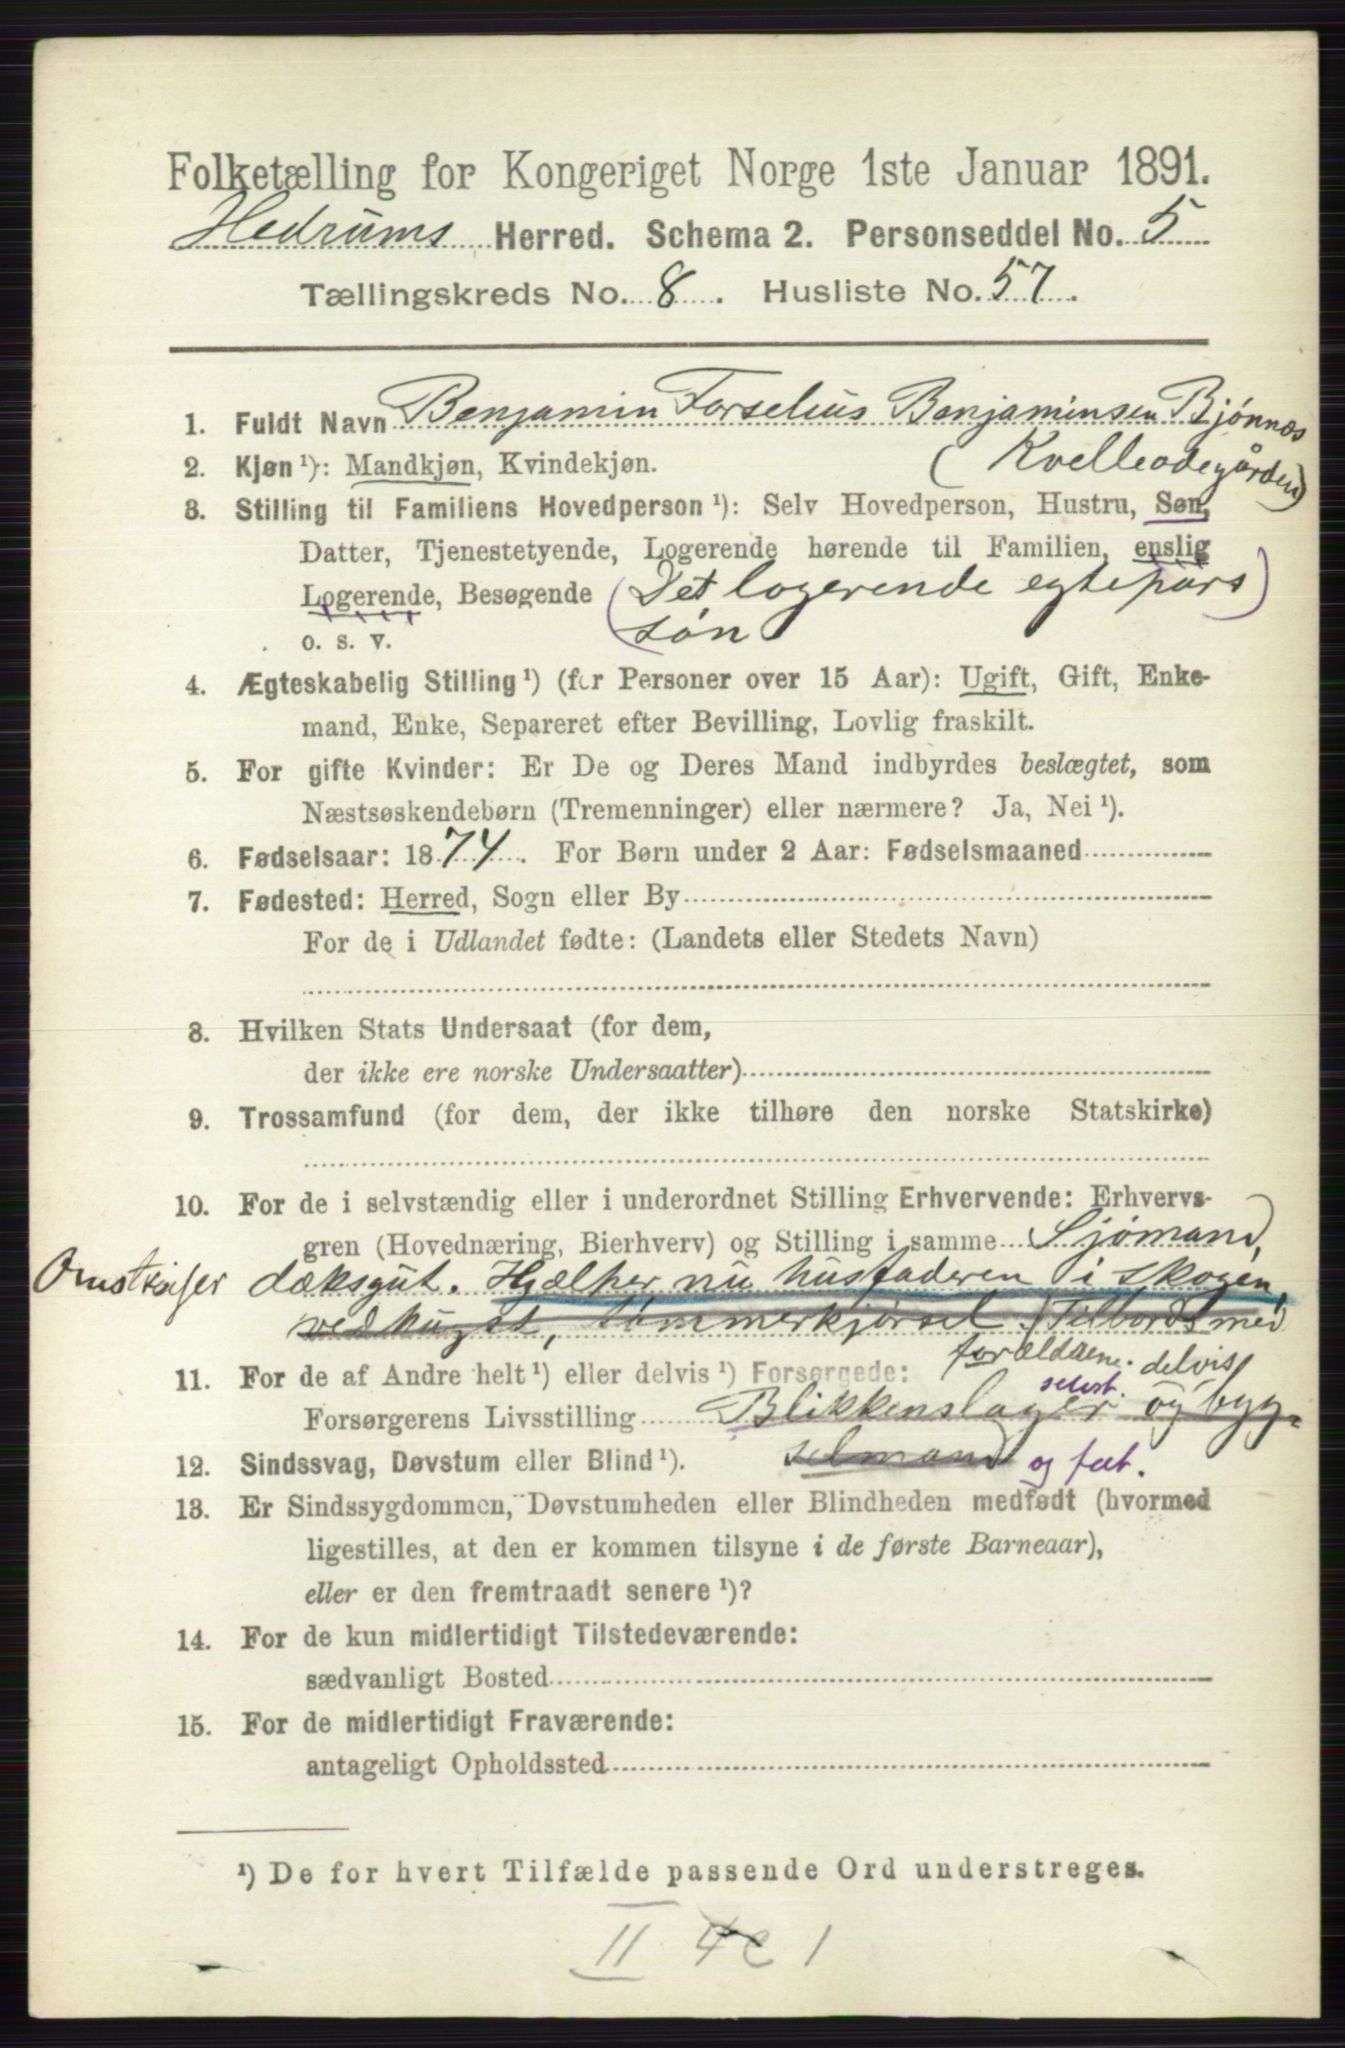 Folketælling for Kongeriget Norge 1ste Januar 1891.
Hedrums Herred. Schema 2. Personseddel No. 5
Tællingskreds No. 8. Husliste No. 57.
1. Fuldt Navn Benjamin Forselius Benjaminsen Bjönnes
(Kvelleødegården)
2. Kjøn ¹): Mandkjøn, Kvindekjøn.
3. Stilling til Familiens Hovedperson ¹): Selv Hovedperson, Hustru, Søn,
Datter, Tjenestetyende, Logerende hørende til Familien, enslig
Logerende, Besøgende (Det logerende egtepars
o. s. v. søn)
4. Ægteskabelig Stilling ¹) (for Personer over 15 Aar): Ugift, Gift, Enke-
mand, Enke, Separeret efter Bevilling, Lovlig fraskilt.
5. For gifte Kvinder: Er De og Deres Mand indbyrdes beslægtet, som
Næstsøskendebørn (Tremenninger) eller nærmere? Ja, Nei ¹).
6. Fødselsaar: 1874. For Børn under 2 Aar: Fødselsmaaned
7. Fødested: Herred, Sogn eller By
For de i Udlandet fødte: (Landets eller Stedets Navn)
8. Hvilken Stats Undersaat (for dem,
der ikke ere norske Undersaatter)
9. Trossamfund (for dem, der ikke tilhøre den norske Statskirke)
10. For de i selvstændig eller i underordnet Stilling Erhvervende: Erhvervs-
gren (Hovednæring, Bierhverv) og Stilling i samme Sjömand,
dæksgut. Hjælper nu husfaderen i skogen,
vedhugst, tømmerkjørsel (Tilbords med
forældrene. delvis
11. For de af Andre helt ¹) eller delvis ¹) Forsørgede:
selvst.
Forsørgerens Livsstilling Blikkenslager og byg-
selmand og fat.
12. Sindssvag, Døvstum eller Blind ¹).
13. Er Sindssygdommen, Døvstumheden eller Blindheden medfødt (hvormed
ligestilles, at den er kommen tilsyne i de første Barneaar),
eller er den fremtraadt senere ¹)?
14. For de kun midlertidigt Tilstedeværende:
sædvanligt Bosted
15. For de midlertidigt Fraværende:
antageligt Opholdssted
¹) De for hvert Tilfælde passende Ord understreges.
II 4c 1